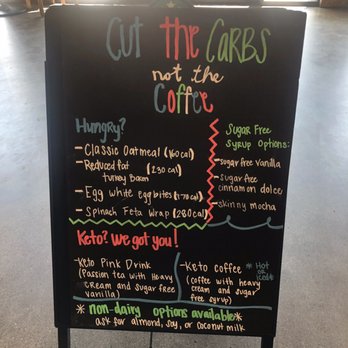 Cut the Carbs
not the
Coffee
Hungry?
- Classic Oatmeal (160 cal)
- Reduced fat (230 cal)
turkey bacon
- Egg white egg bites (170 cal)
- Spinach Feta Wrap (280 cal)
Sugar Free
Syrup Options:
- sugar free vanilla
- sugar free
cinnamon dolce
- skinny mocha
Keto? We got you!
- Keto Pink Drink
(Passion tea with Heavy
cream and sugar free
vanilla)
- Keto coffee
* Hot
or iced *
(coffee with heavy
cream and sugar
free syrup)
* non-dairy options available *
ask for almond, soy, or coconut milk